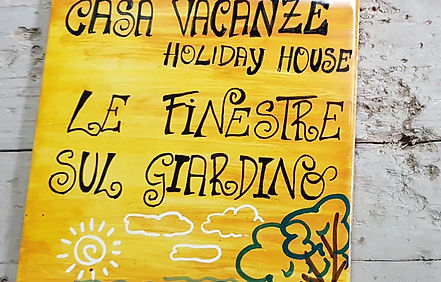 CASA VACANZE
HOLIDAY HOUSE
LE FINESTRE
SUL GIARDINO